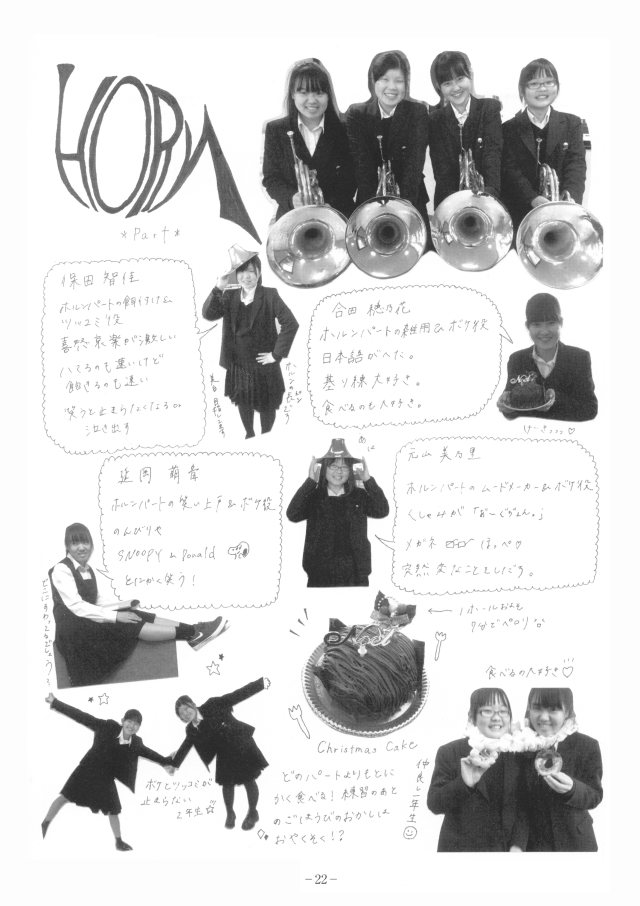 HORN
*Part*
保田 智佳
ホルンパートの餌付け&
ツッコミ役
喜怒哀楽が激しい
ハマるのも速いけど
飽きるのも速い
笑うと止まらなくなるor
泣き出す
合田 穂乃花
ホルンパートの雑用&ボケ役
日本語がへた。
基り棟大好き。
食べるのも大好き。
けーきっっっ♡
延岡 萌
ホルンパートの笑い上戸&ボケ役
のんびりや
SNOOPY & Donald
とにかく笑う!
元山 美乃里
ホルンパートのムードメーカー&ボケ役
くしゃみが
メガネ ほっぺ♡
突然変なことしだす。
1ホールおんも
7分でペロリ
食べるの大好き♡
Christmas Cake
どのパートよりもとに
かく食べる!練習のあと
のごほうびのおかしは
おやくそく!?
仲良し一年生☺
ボケとツッコミが
止まらない
2年生☆
-22-